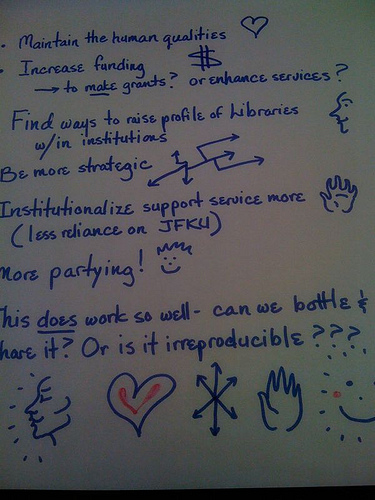 • Maintain the human qualities
• Increase funding $
→ to make grants? or enhance services?
Find ways to raise profile of Libraries
w/in institutions
Be more strategic
Institutionalize support service more
(less reliance on JFKU)
More partying!
This does work so well - can we bottle &
share it? Or is it irreproducible ???